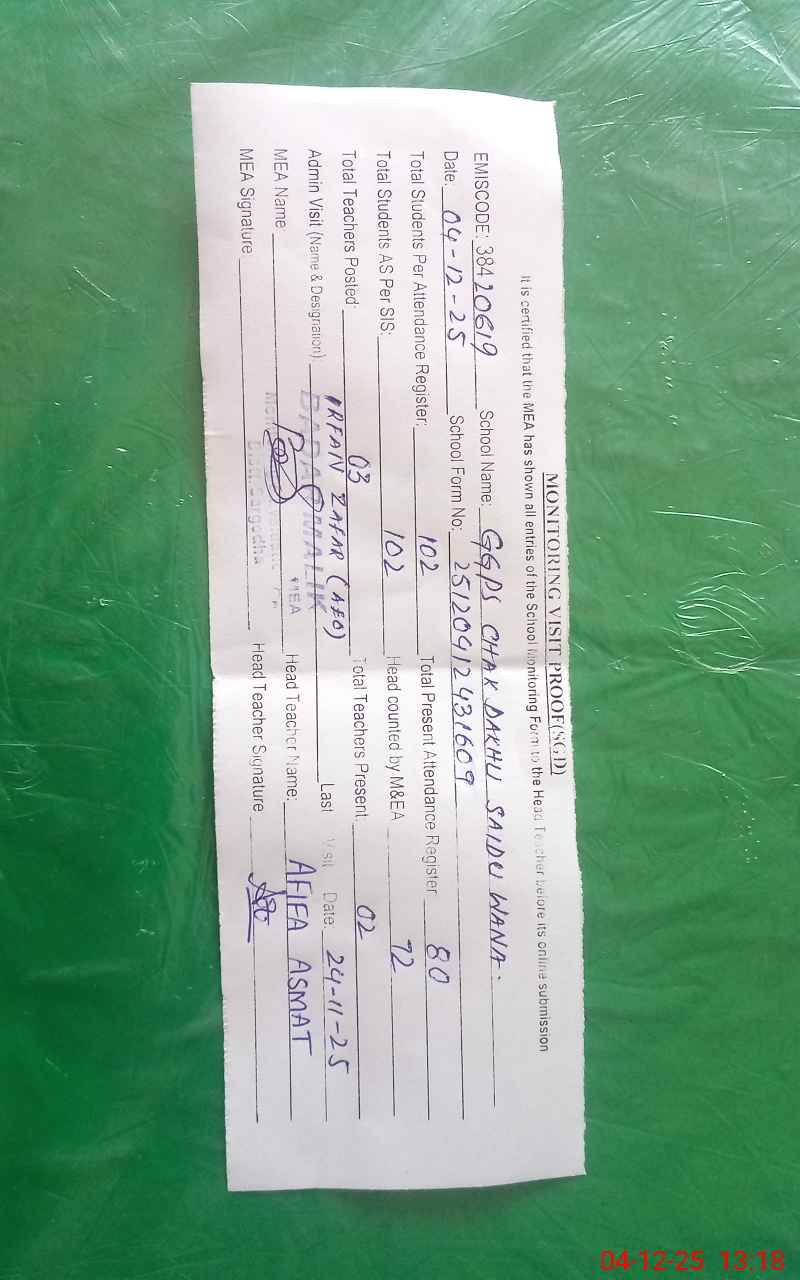 MONITORING VISIT PROOF(SGD)
It is certified that the MEA has shown all entries of the School Monitoring Form to the Head Teacher before its online submission
EMISCODE: 38420619 School Name: GGPS CHAK DAKHU SAIDU WANA.
Date: 04-12-25 School Form No: 25120912431609
Total Students Per Attendance Register: 102 Total Present Attendance Register 80
Total Students AS Per SIS: 102 Head counted by M&EA 72
Total Teachers Posted: 03 Total Teachers Present: 02
Admin Visit (Name & Designation) IRFAN ZAFAR (AEO) Last Visit Date: 24-11-25
MEA Name MALIK MEA Head Teacher Name: AFIFA ASMAT
MEA Signature Sargodha Head Teacher Signature
04-12-25 13:18